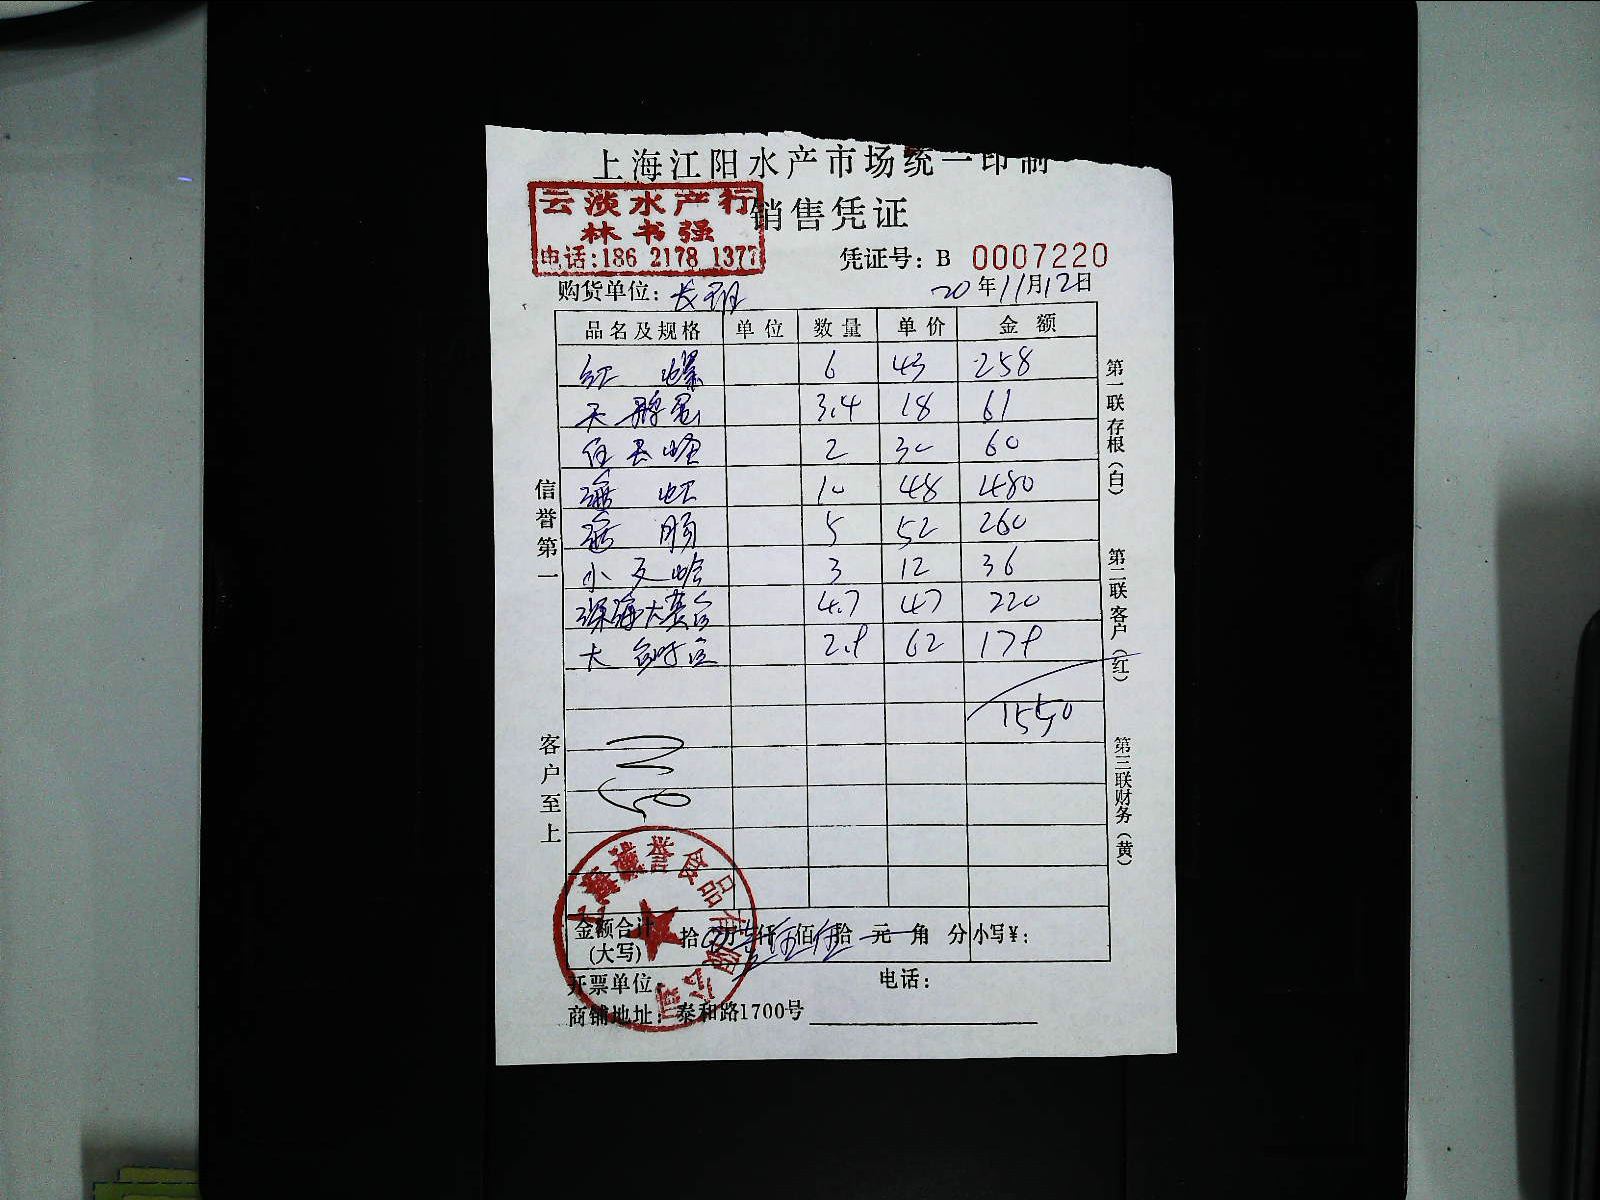 上海江阳水产市场统一印制
云淡水产行
林书强
电话:186 2178 1377
销售凭证
凭证号: B 0007220
购货单位:
20年11月12日
品名及规格 单位 数量 单价 金额
红螺 6 43 258
天鹅蛋 3.4 18 61
2 30 60
海虹 10 48 480
海肠 5 52 260
小文蛤 3 12 36
深海大黄 4.7 47 220
大 2.9 62 179
1550
信誉第一
客户至上
第一联存根(白)
第二联客户(红)
第三联财务(黄)
金额合计(大写) 拾 万壹仟伍佰伍拾元角分 小写¥:
开票单位: 电话:
商铺地址: 泰和路1700号
誉食品有限公司